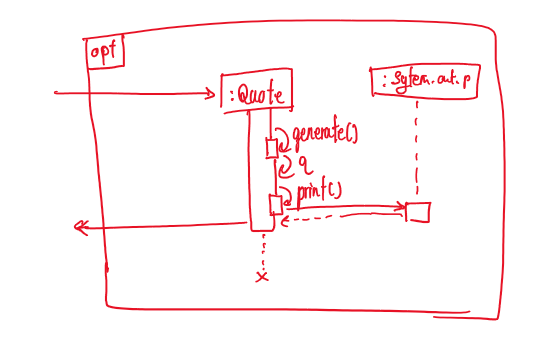 opt
:Quote
:System.out.p
generate()
q
print()